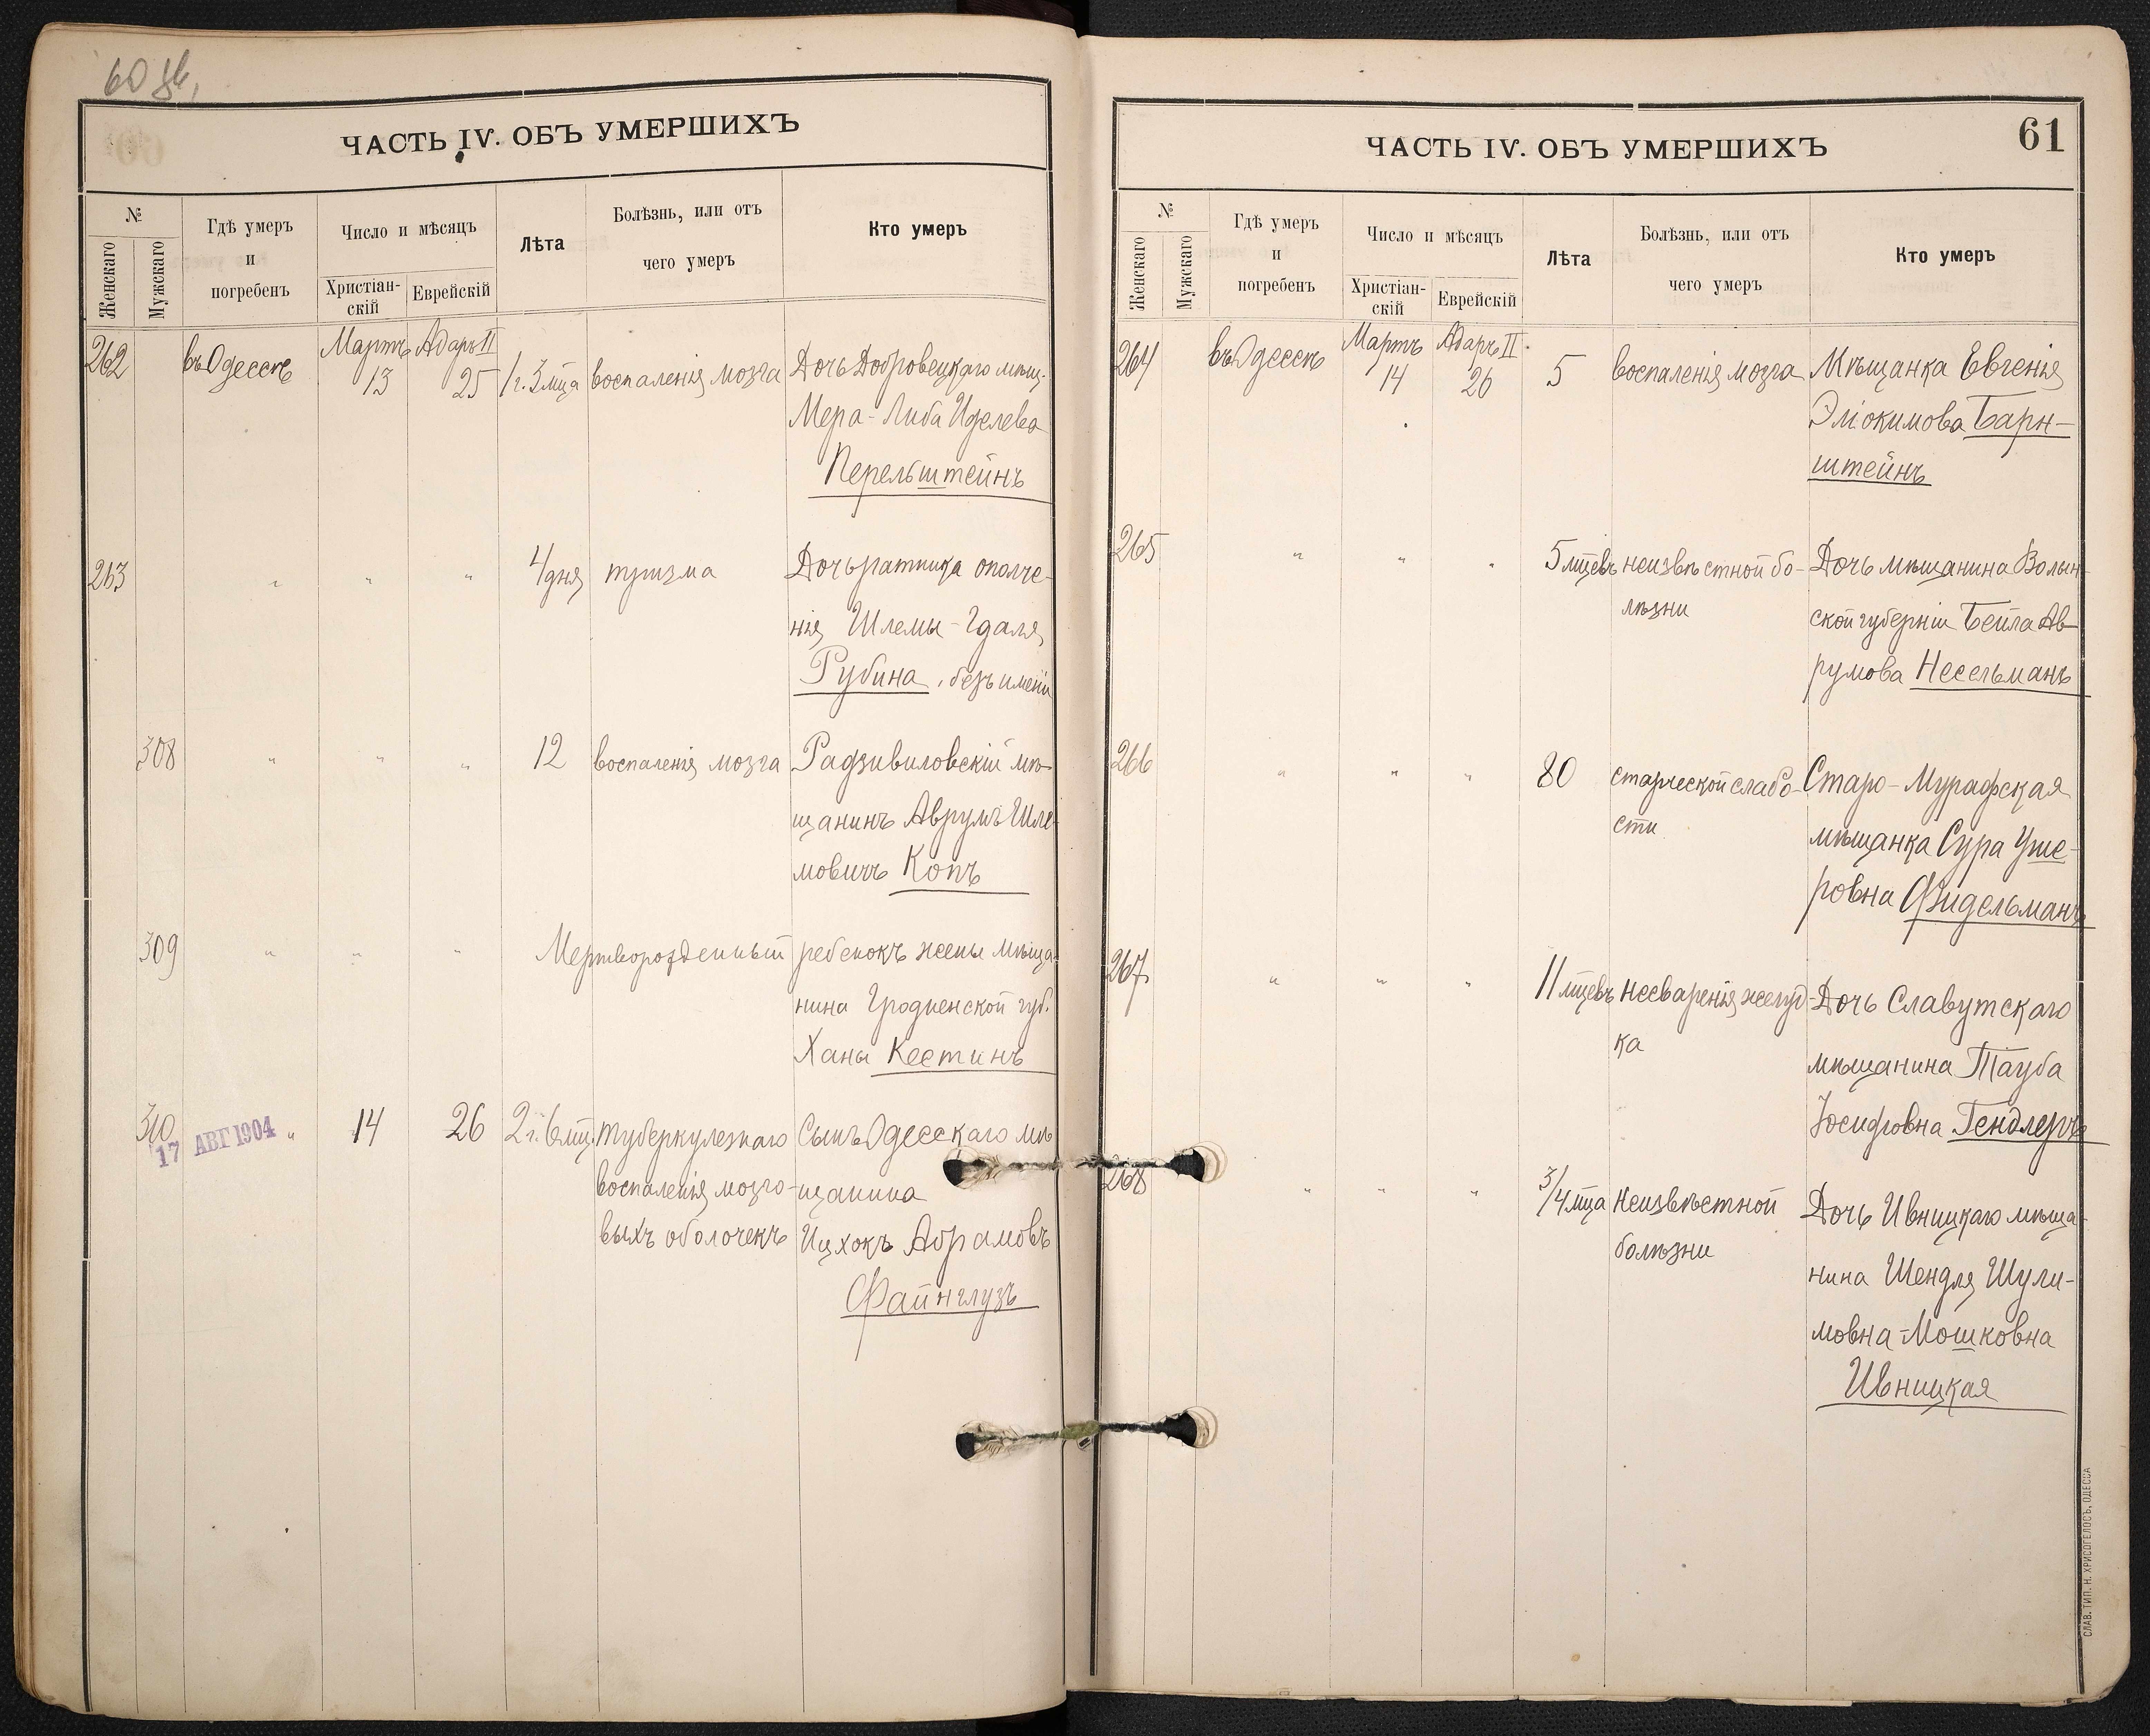 60 об.
ЧАСТЬ IV. ОБЪ УМЕРШИХЪ
№
Женскаго
Мужскаго
Гдѣ умеръ
и
погребенъ
Число и мѣсяцъ
Христіан-
скій
Еврейскій
Лѣта
Болѣзнь, или отъ
чего умеръ
Кто умеръ
262 въ Одессѣ Мартъ 13 Адаръ II 25 1 г. 3 мца воспаленія мозга Дочь Добровецкаго мѣщ.
Мера-Либа Иделева
Перельштейнъ
263 " " " 4 дня тризма Дочь ратника ополче-
нія Шлемы-Гдаля
Рубина, безъ имени
308 " " " 12 воспаленія мозга Радзивиловскій мѣ-
щанинъ Аврумъ Шле-
мовичъ Копъ
309 " " " Мертворожденный ребенокъ жены мѣща-
нина Гродненской губ.
Ханы Кестинъ
310 " 14 26 2 г. 6 мц. туберкулезнаго Сынъ Одесскаго мѣ
17 АВГ 1904
воспаленія мозго- щанина
выхъ оболочекъ Ицхокъ Абрамовъ
Файнглузъ
ЧАСТЬ IV. ОБЪ УМЕРШИХЪ
61
№
Женскаго
Мужскаго
Гдѣ умеръ
и
погребенъ
Число и мѣсяцъ
Христіан-
скій
Еврейскій
Лѣта
Болѣзнь, или отъ
чего умеръ
Кто умеръ
264 въ Одессѣ Мартъ 14 Адаръ II 26 5 воспаленія мозга Мѣщанка Евгенія
Эліокимова Барн-
штейнъ
265 " " " 5 мцевъ неизвѣстной бо- Дочь мѣщанина Волын-
лѣзни ской губерніи Бейла Ав-
румова Несельманъ
266 " " " 80 старческой слабо- Старо-Мурафская
сти мѣщанка Сура Уше-
ровна Фидельманъ
267 " " " 11 мцевъ несваренія желуд- Дочь Славутскаго
ка мѣщанина Тауба
Іосифовна Гендлеръ
268 " " " 3/4 мца неизвѣстной Дочь Ивницкаго мѣща-
болѣзни нина Шендля Шули-
мовна-Мошковна
Ивницкая
СЛАВ. ТИП. Н. ХРИСОГЕЛОСЪ, ОДЕССА